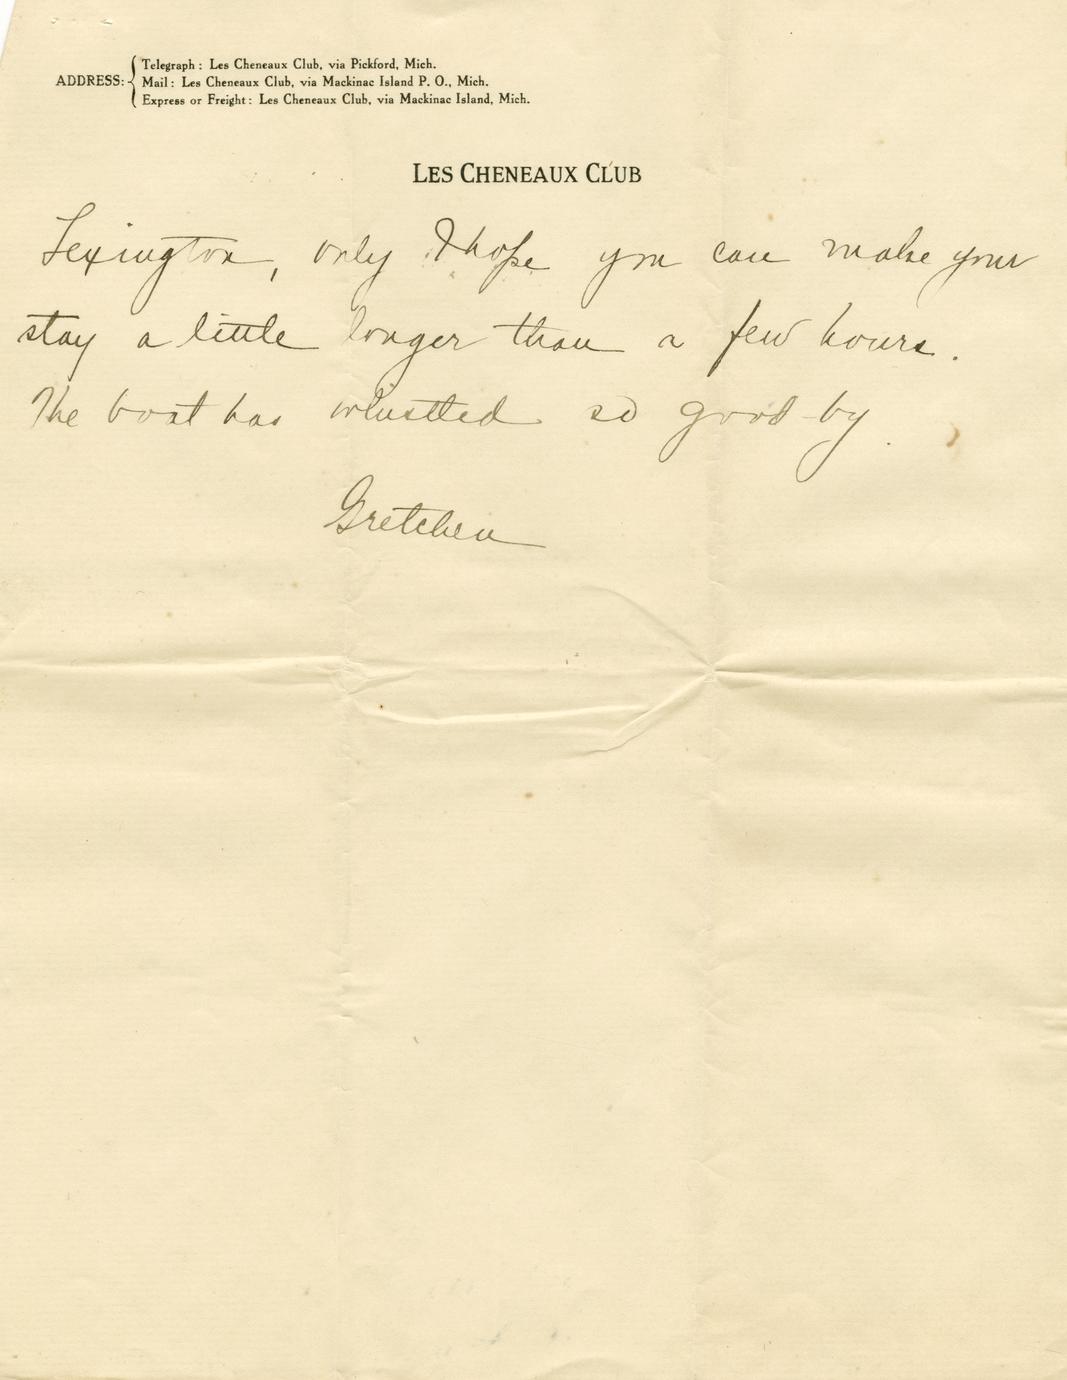 Telegraph : Les Cheneaux Club, via Pickford, Mich.
ADDRESS: Mail : Les Cheneaux Club, via Mackinac Island P. O., Mich.
Express or Freight : Les Cheneaux Club, via Mackinac Island, Mich.
LES CHENEAUX CLUB
Lexington, only I hope you can make your
stay a little longer than a few hours.
The boat has whistled so good-by.
Gretchen